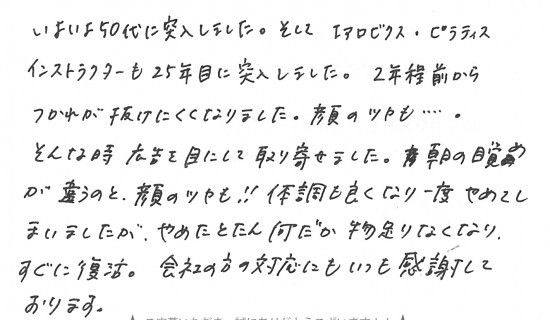 いよいよ50代に突入しました。そして エアロビクス・ピラティス
インストラクターも25年目に突入しました。2年程前から
つかれが抜けにくくなりました。顔のツヤも‥‥。
そんな時 広告を目にして取り寄せました。朝の目覚め
が違うのと、顔のツヤも!! 体調も良くなり一度やめてし
まいましたが、やめたとたん何だか物足りなくなり、
すぐに復活。会社の方の対応にもいつも感謝して
おります。